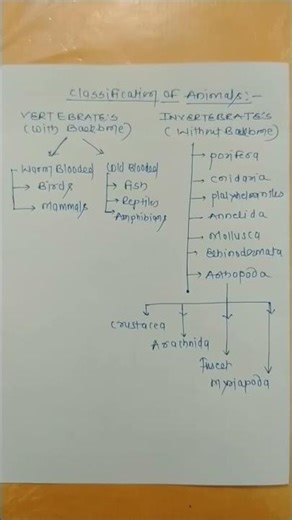 Classification Of Animals:-
VERTEBRATE'S
(With Backbone)
INVERTEBRATE'S
(Without Backbone)
Warm Blooded
Birds
Mammals
Cold Blooded
Fish
Reptiles
Amphibians
porifera
Cnidaria
platyhelmenthes
Annelida
Mollusca
Echinodermata
Arthopoda
Crustacea
Arachnida
Insect
Myriapoda